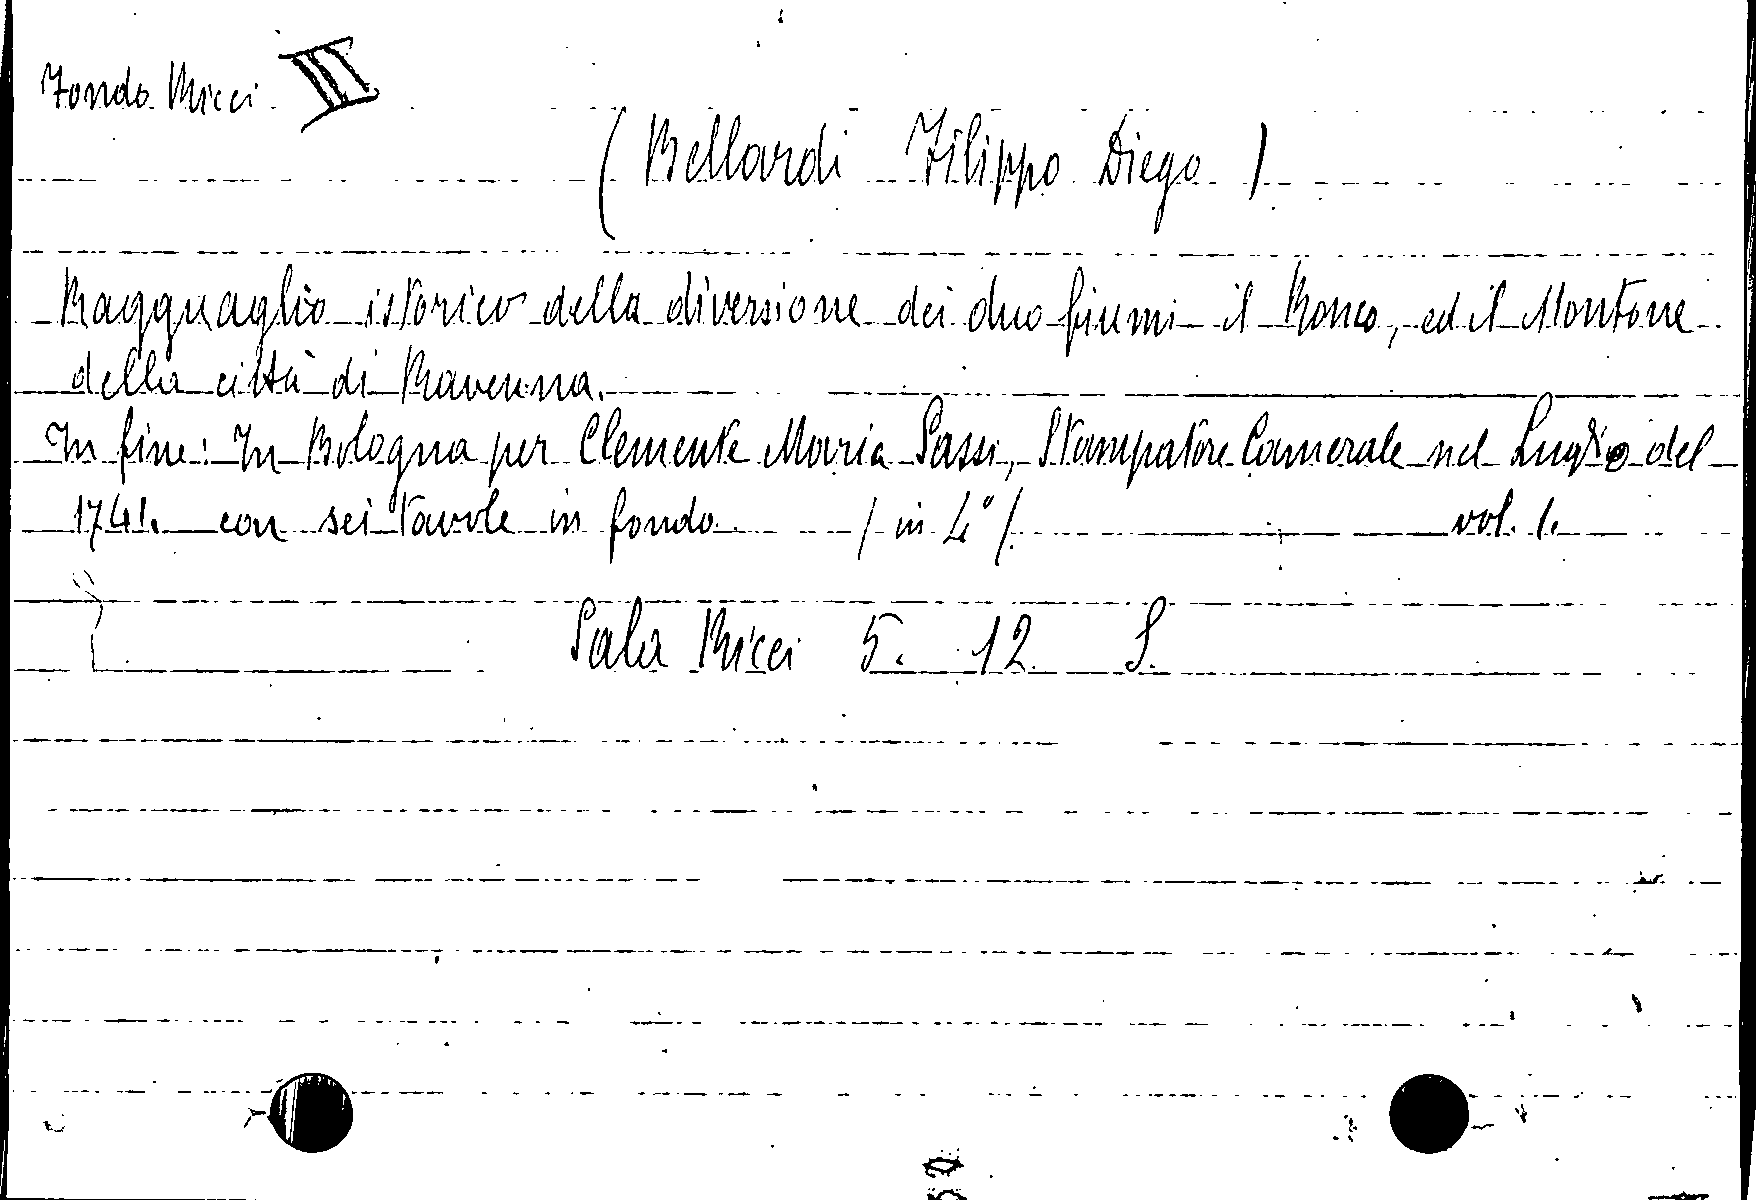 Fondo Ricci III
( Bellardi Filippo Diego )
Ragguaglio istorico della diversione dei duo fiumi il Ronco, ed il Montone
della città di Ravenna.
In fine: In Bologna per Clemente Maria Sassi, Stampatore Camerale nel Luglio del
1741. con sei tavole in fondo. / in 4° /. vol. 1.
Sala Ricci 5. 12 S.